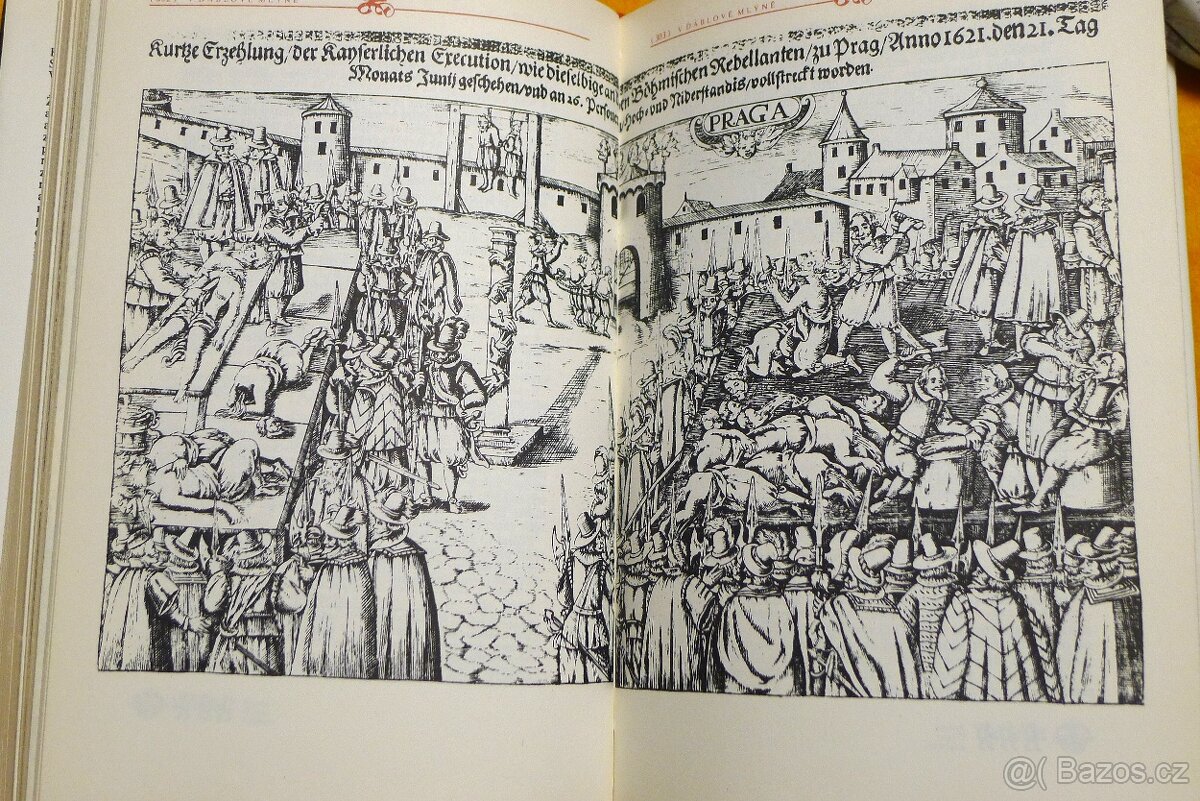 V ĎÁBLOVĚ MLÝNĚ
(303) V ĎÁBLOVĚ MLÝNĚ
Kurtze Erzehlung/der Kayserlichen Execution/wie dieselbige an den Böhmischen Rebellanten/zu Prag/Anno 1621. den 21. Tag
Monats Junij geschehen/vnd an 26. Personen Hoch- vnd Niderstandis/vollstreckt worden.
PRAGA
@( Bazos.cz